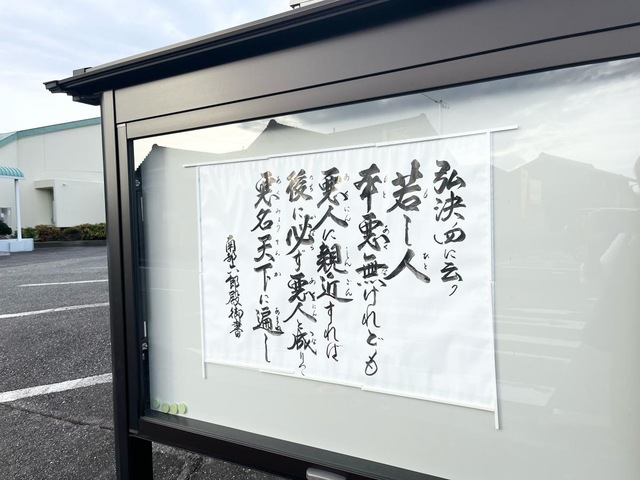 弘決四に云く
若し人
本悪無けれども
悪人に親近すれば
後に必ず悪人と成りて
悪名天下に遍し
南部六郎殿御書